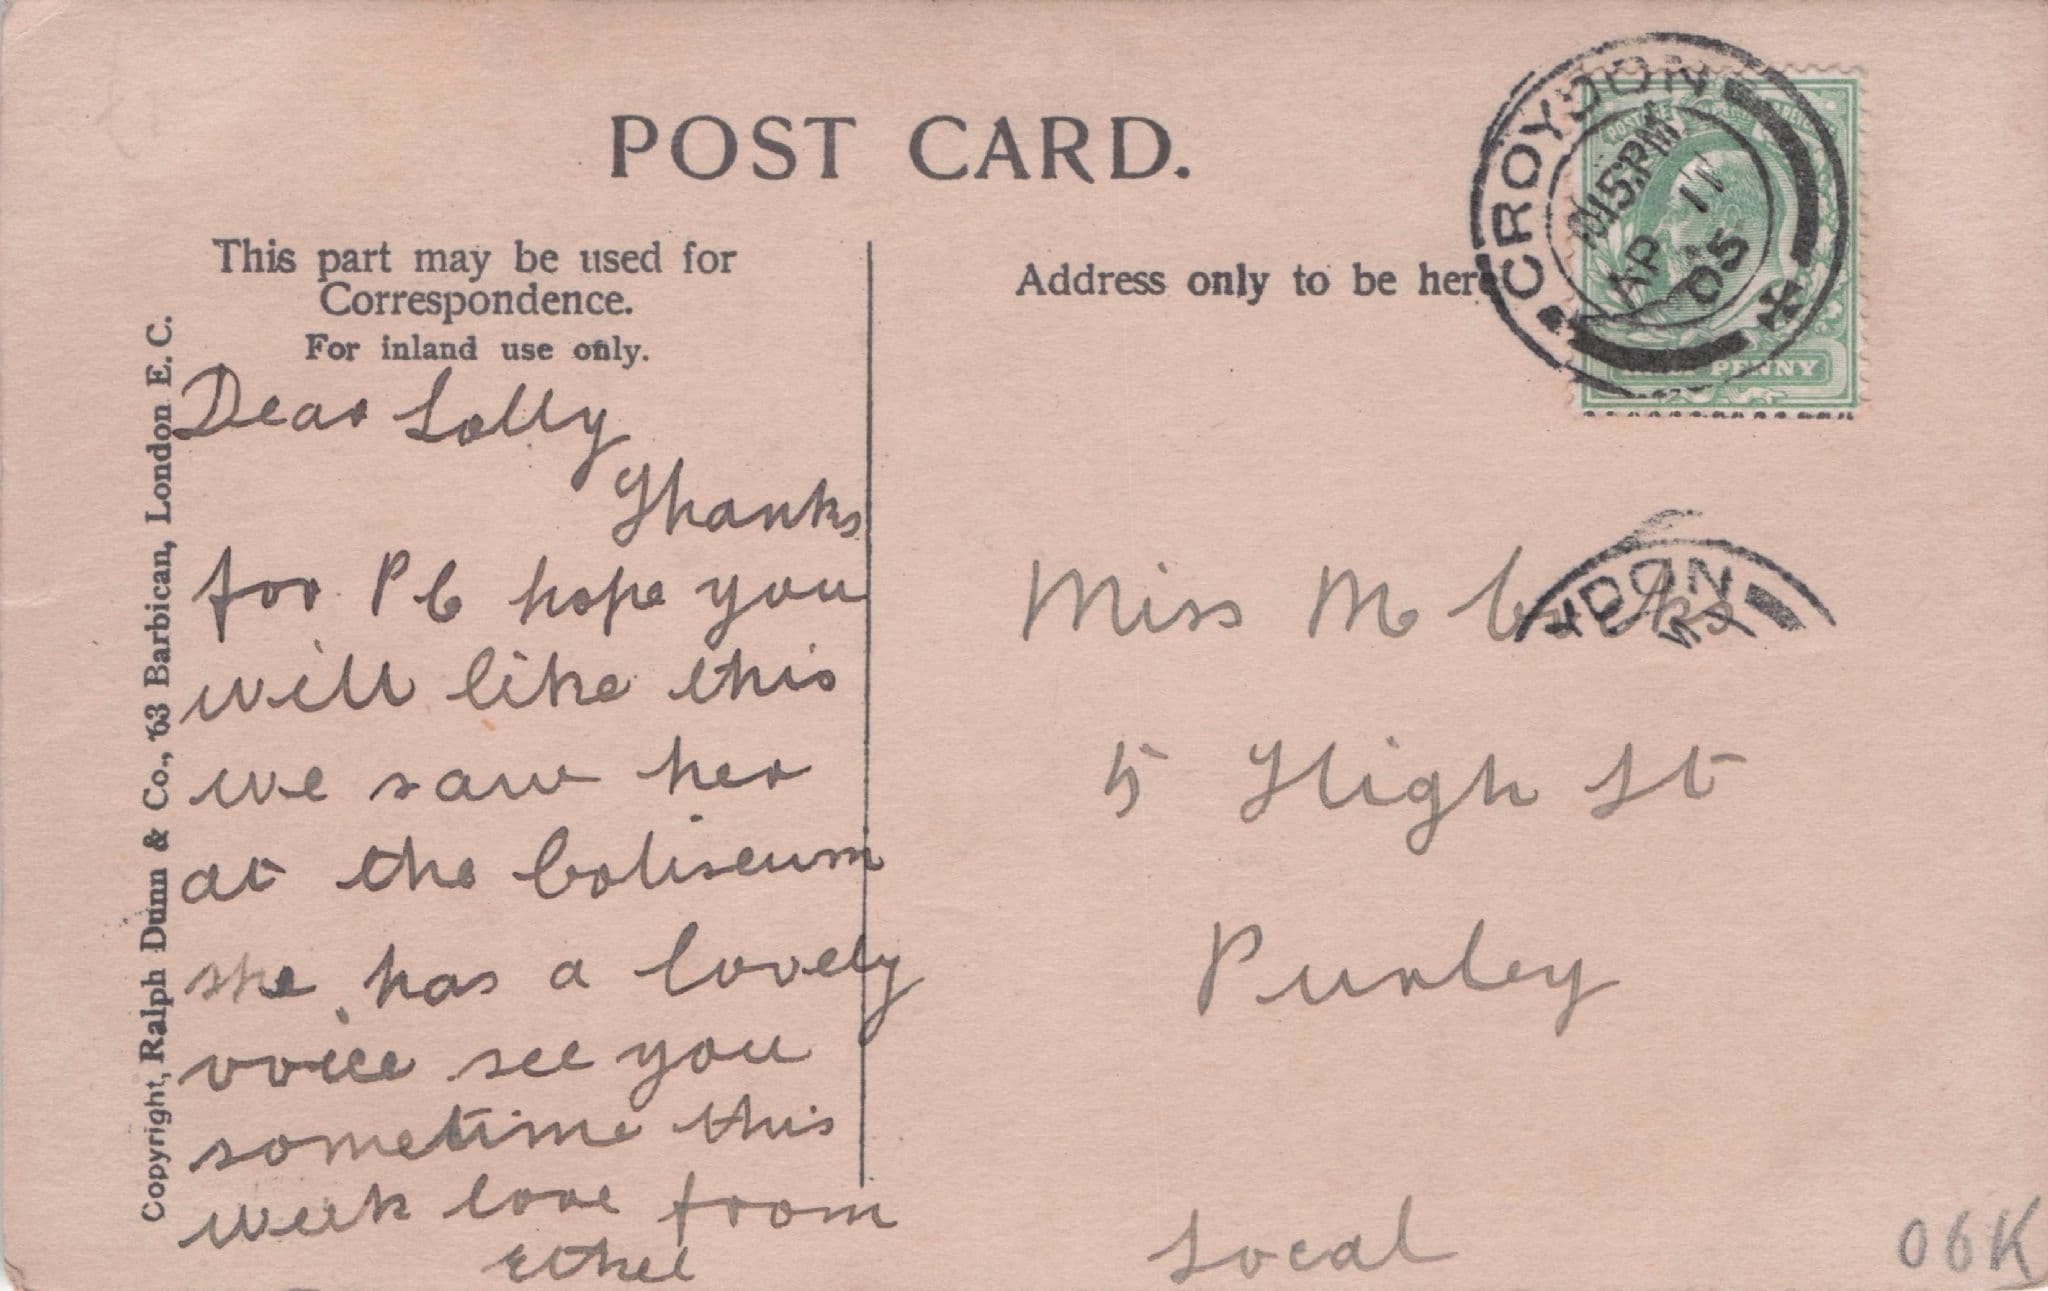 POST CARD.
This part may be used for
Correspondence.
For inland use only.
Address only to be here
Copyright, Ralph Dunn & Co., 63 Barbican, London E. C.
Dear Lolly
Thanks
for PC hope you
will like this
we saw her
at the Coliseum
she has a lovely
voice see you
sometime this
week love from
Ethel
CROYDON
15 PM
AP 11
05
POSTAGE
PENNY
YDON
Miss M
5 High St
Purley
Local
06K